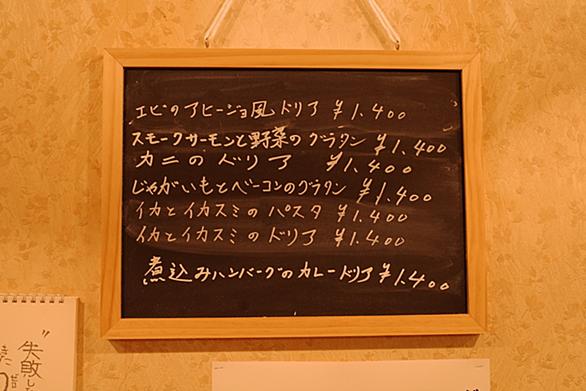 エビのアヒージョ風ドリア ¥1.400
スモークサーモンと野菜のグラタン ¥1.400
カニのドリア ¥1.400
じゃがいもとベーコンのグラタン ¥1.400
イカとイカスミのパスタ ¥1.400
イカとイカスミのドリア ¥1.400
煮込みハンバーグのカレードリア ¥1.400
"失敗し